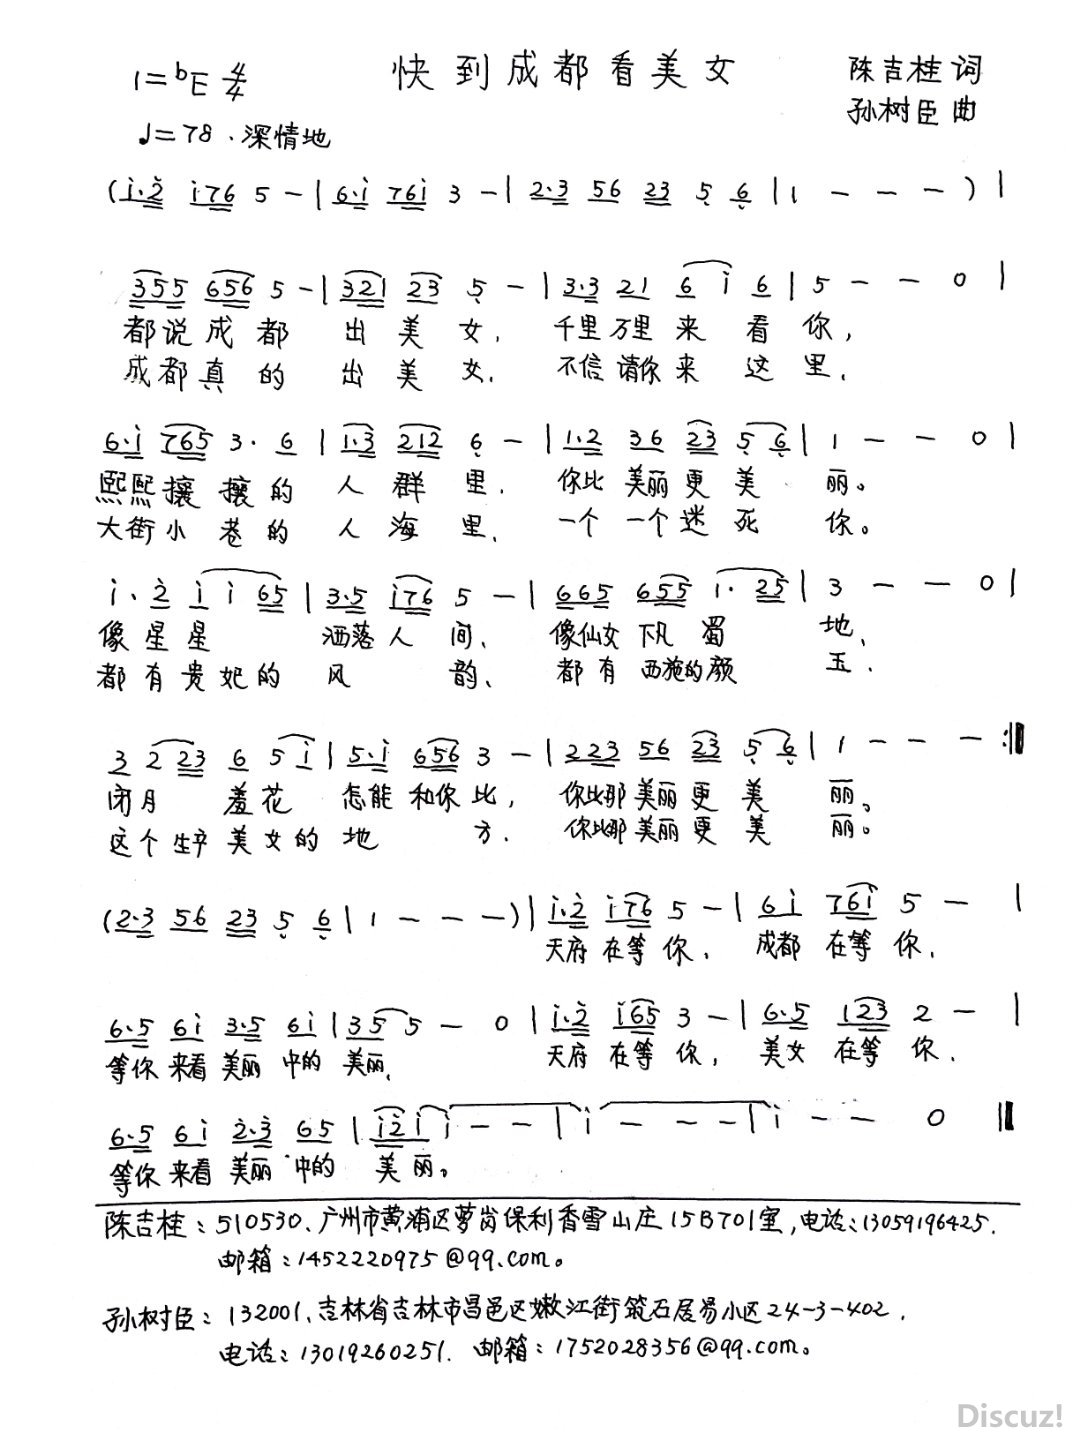 1=♭E 4/4
快到成都看美女
陈吉桂 词
孙树臣 曲
♩=78 深情地
(i·2 i76 5 - | 6·i 76i 3 - | 2·3 56 23 5 6 | 1 - - - ) |
355 656 5 - | 321 23 5 - | 3·3 21 6 i 6 | 5 - - 0 |
都说成都 出美女, 千里万里来看你,
成都真的 出美女, 不信请你来这里,
6·i 765 3· 6 | 1·3 212 6 - | 1·2 36 23 5 6 | 1 - - 0 |
熙熙攘攘的人群里, 你比美丽更美丽。
大街小巷的人海里, 一个一个迷死你。
i· 2 i i 65 | 3·5 i76 5 - | 665 655 1· 25 | 3 - - 0 |
像星星 洒落人间, 像仙女下凡蜀地,
都有贵妃的风韵、 都有西施的颜玉.
3 2 23 6 5 i | 5·i 656 3 - | 223 56 23 5 6 | 1 - - - :‖
闭月羞花 怎能和你比, 你比那美丽更美丽。
这个生产美女的地方. 你比那美丽更美丽。
(2·3 56 23 5 6 | 1 - - - ) | i·2 i76 5 - | 6i 76i 5 - |
天府在等你, 成都在等你,
6·5 6i 3·5 6i | 35 5 - 0 | i·2 i65 3 - | 6·5 123 2 - |
等你来看美丽中的美丽, 天府在等你, 美女在等你.
6·5 6i 2·3 65 | i2 i i - - | i - - - | i - - 0 ‖
等你来看美丽中的美丽。
陈吉桂:510530、广州市黄浦区萝岗保利香雪山庄15B701室,电话:13059196425.
邮箱:1452220975@qq.com。
孙树臣:132001,吉林省吉林市昌邑区嫩江街筑石居易小区24-3-402.
电话:13019260251. 邮箱:1752028356@qq.com。
Discuz!